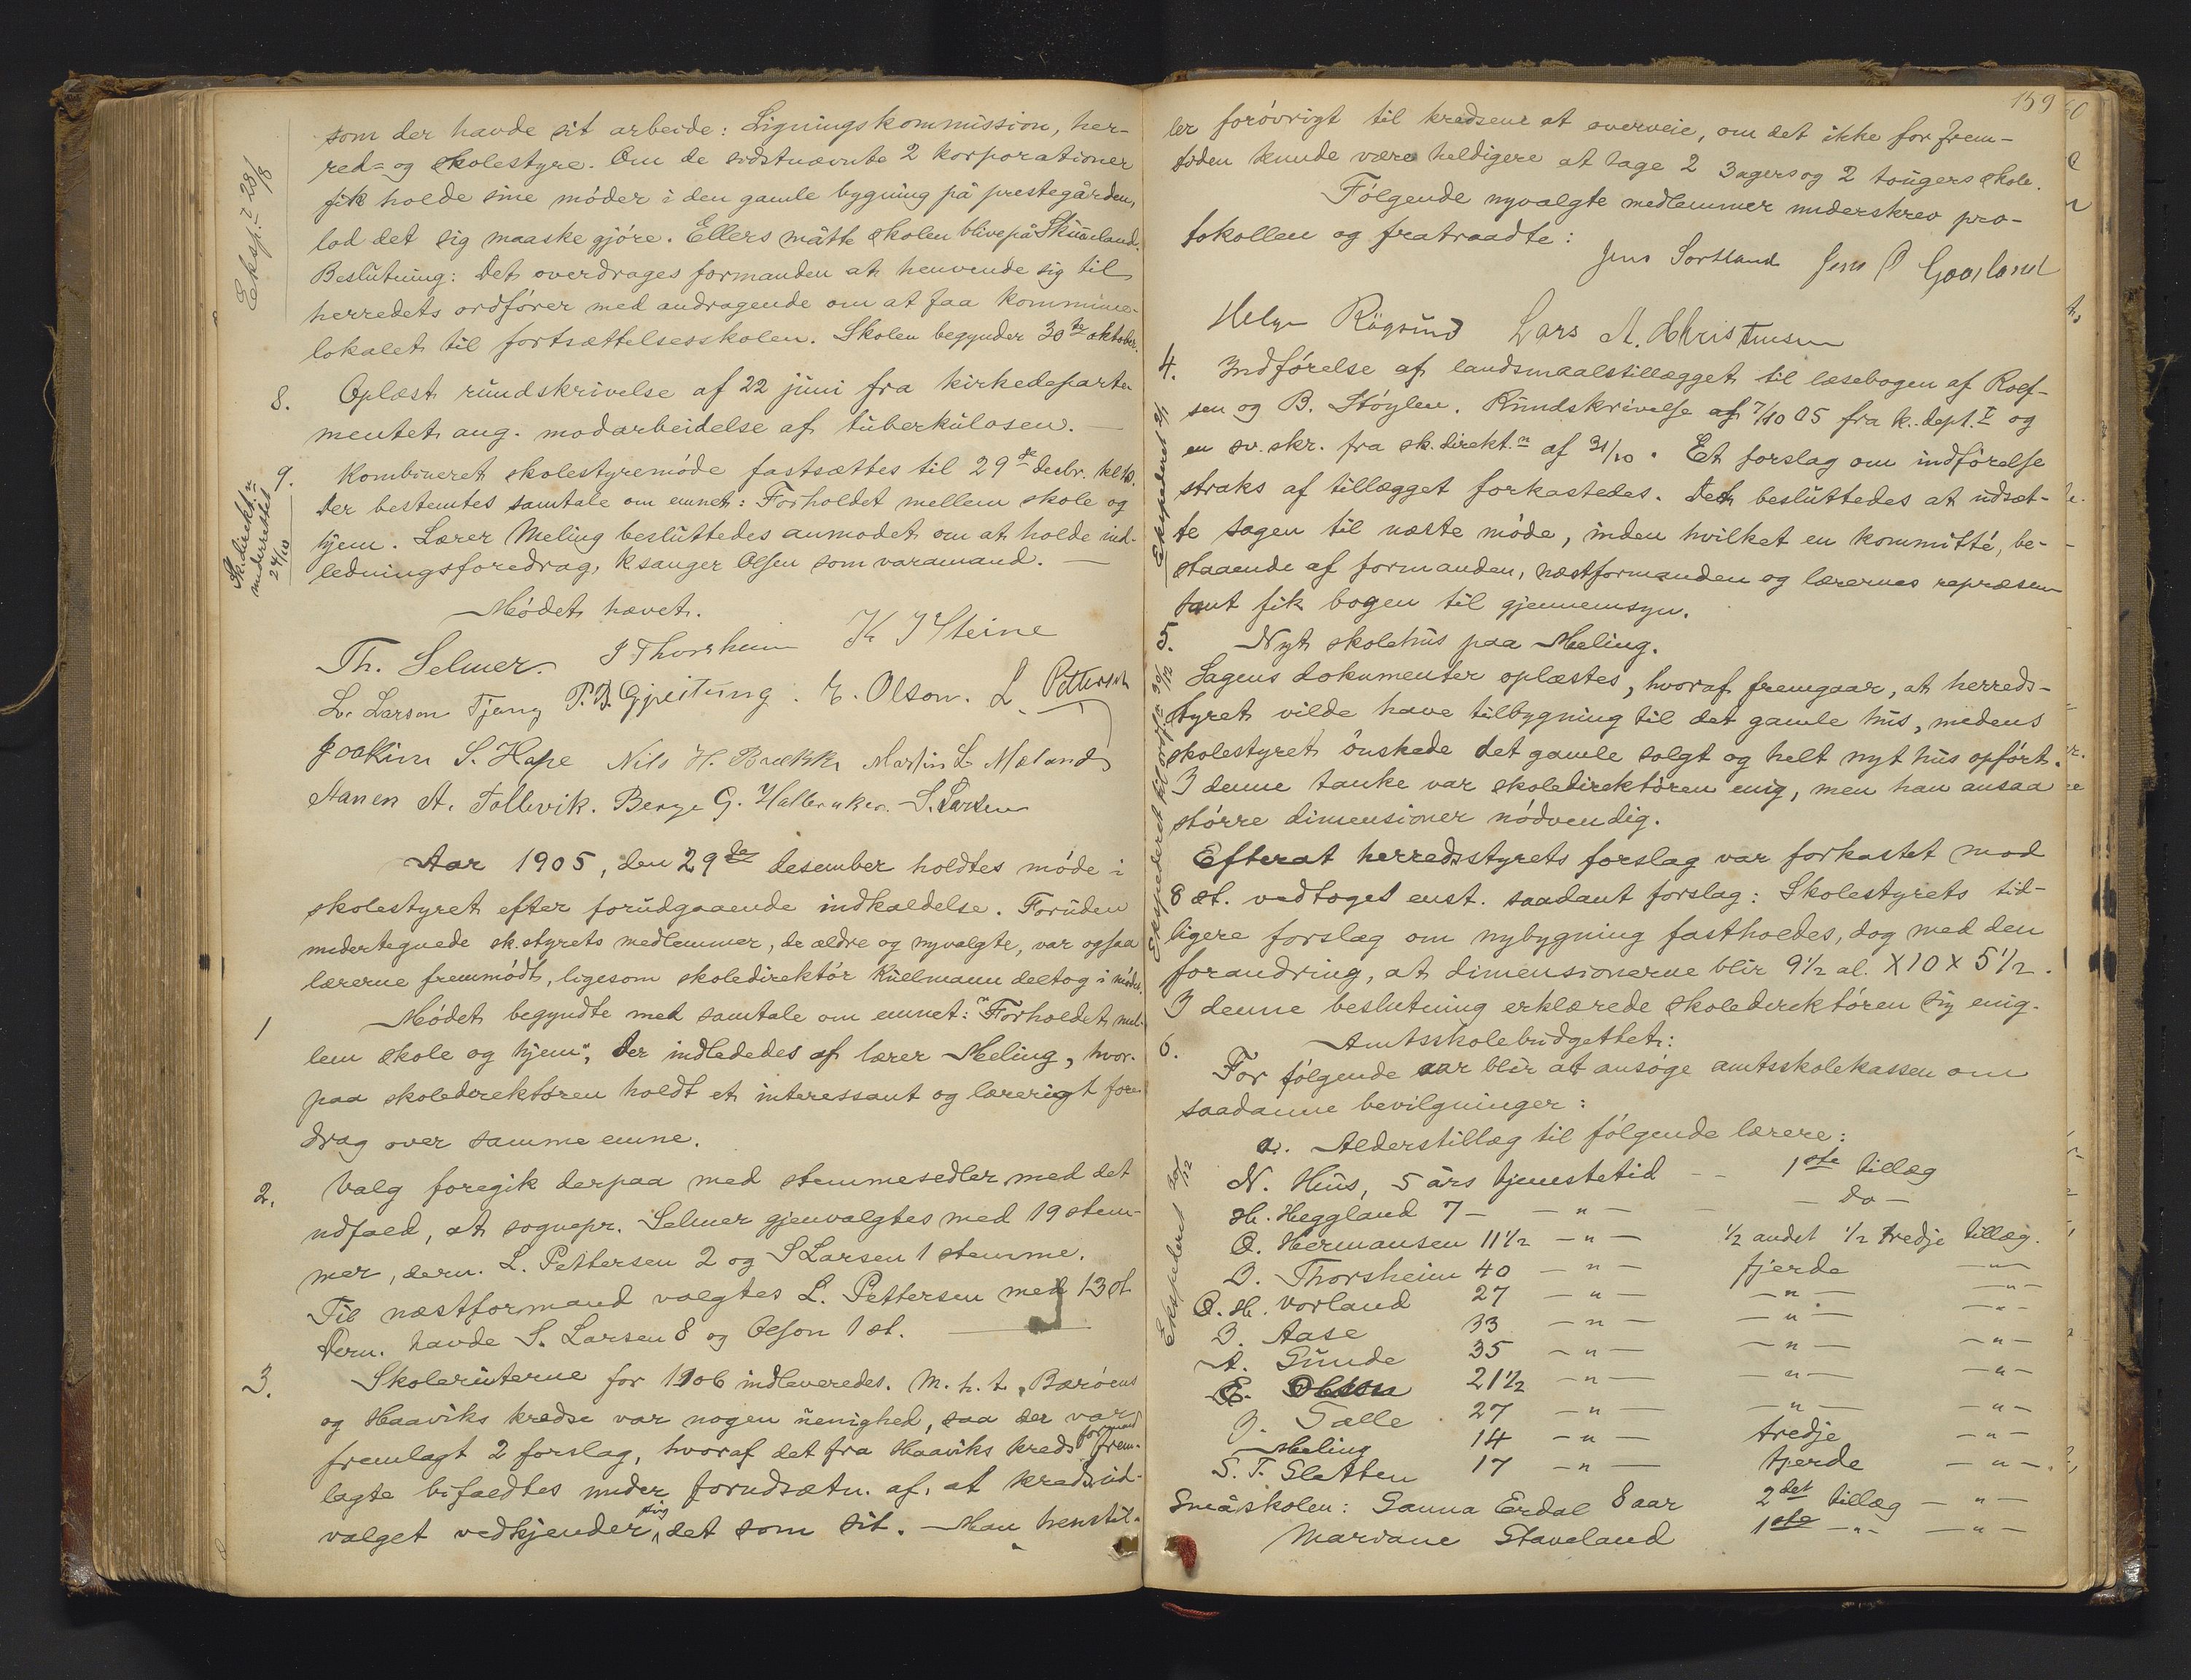 som der havde sit arbeide: Ligningskommission, her-
red- og skolestyre. Om de sidstnævnte 2 korporationer
fik holde sine möder i den gamle bygning på prestegården,
lod det sig maaske gjöre. Ellers måtte skolen blive på
Beslutning: Det overdrages formanden at henvende sig til
herredets ordförer med andragende om at faa kommune-
lokalet til fortsættelsesskolen. Skolen begynder 30te oktober.
Eksp. I 28/8
8. Oplæst rundskrivelse af 22 juni fra kirkedeparte-
mentet ang. modarbeidelse af tuberkulosen. —
9. Kombineret skolestyremöde fastsættes til 29de decbr. kl 10.
Der bestemtes samtale om emnet: Forholdet mellem skole og
hjem. Lærer Meling besluttedes anmodet om at holde ind-
ledningsforedrag, k sanger Olsen som varamand. —
Sk.direkt.n
underrettet
24/10
Mödet hævet.
Th. Selmer. I Thorsheim K J Steine
L. Larson Tjong P. B. Gjeitung. E. Olson. L. Pettersen
Joakim S. Hope Nils H. Brekke Martin L Mæland
A. Tollevik. Berge G. S. Larsen
Aar 1905, den 29de desember holdtes möde i
skolestyret efter forudgaaende indkaldelse. Foruden
undertegnede sk.styrets medlemmer, de ældre og nyvalgte, var ogsaa
lærerne fremmödt, ligesom skoledirektör Küelmann deltog i mödet.
1 Mödet begyndte med samtale om emnet: "Forholdet mel-
lem skole og hjem", der indlededes af lærer Meling, hvor-
paa skoledirektören holdt et interessant og lærerigt fore-
drag over samme emne.
2. Valg foregik derpaa med stemmesedler med det
udfald, at sognepr. Selmer gjenvalgtes med 19 stem-
mer, dern. L. Pettersen 2 og S Larsen 1 stemme.
Til næstformand valgtes L. Pettersen med 13 st.
Dern. havde S. Larsen 8 og Olson 1 st. —
3. Skoleruterne for 1906 indleveredes. M. h. t. Baröens
og Haaviks kredse var nogen uenighed, saa der var
fremlagt 2 forslag, hvoraf det fra Haaviks kreds formand frem-
lagte bifaldtes under forudsætn. af, at kredsud-
valget vedkjender sig det som sit. — Man henstil-
159
ler forövrigt til kredsene at overveie, om det ikke for frem-
tiden kunde være heldigere at tage 2 3ugers og 2 tougers skole.
Fölgende nyvalgte medlemmer underskrev pro-
tokollen og fratraadte:
Jens Sortland Jens
Helge Rögsund Lars A. Christensen
4. Indförelse af landsmaalstillægget til læsebogen af Rolf-
sen og B. Stöylen. Rundskrivelse af 7/10 05 fra k. dept. I og
en sv. skr. fra sk.direkt.n af 31/10. Et forslag om indförelse
straks af tillægget forkastedes. Det besluttedes at udsæt-
te sagen til næste möde, inden hvilket en kommitté, be-
staaende af formanden, næstformanden og lærernes repræsen-
tant fik bogen til gjennemsyn.
5. Nyt skolehus paa Meling.
Sagens dokumenter oplæstes, hvoraf fremgaar, at herreds-
styret vilde have tilbygning til det gamle hus, medens
skolestyret önskede det gamle solgt og helt nyt hus opfört.
I denne tanke var skoledirektören enig, men han ansaa
större dimensioner nödvendig.
Efterat herredsstyrets forslag var forkastet mod
8 st. vedtoges enst. saadant forslag: Skolestyrets tid-
ligere forslag om nybygning fastholdes, dog med den
forandring, at dimensionerne blir 9½ al. X 10 X 5½.
I denne beslutning erklærede skoledirektören sig enig.
6. Amtsskolebudgettet:
For fölgende aar blir at ansöge amtsskolekassen om
saadanne bevilgninger:
Ekspederet 30/12
a. Alderstillæg til fölgende lærere:
N. Huus, 5 års tjenestetid — 1ste tillæg
H. Heggland 7 — — " — — Do —
O. Hermansen 11½ — " — ½ andet ½ tredje tillæg.
I. Thorsheim 40 — " — fjerde — " —
O. H. Vorland 27 — " — — " — — " —
I. Aase 33 — " — — " — — " —
A. Gunde 35 — " — — " — — " —
E. Olson 21½ — " — — " — — " —
J. Tælle 27 — " — — " — — " —
Meling 14 — " — tredje — " —
S. T. Sletten 17 — " — fjerde — " —.
Småskolen: Sanna Erdal 8 aar 2det tillæg — " —
Mariane Staveland 1ste — " — — " —